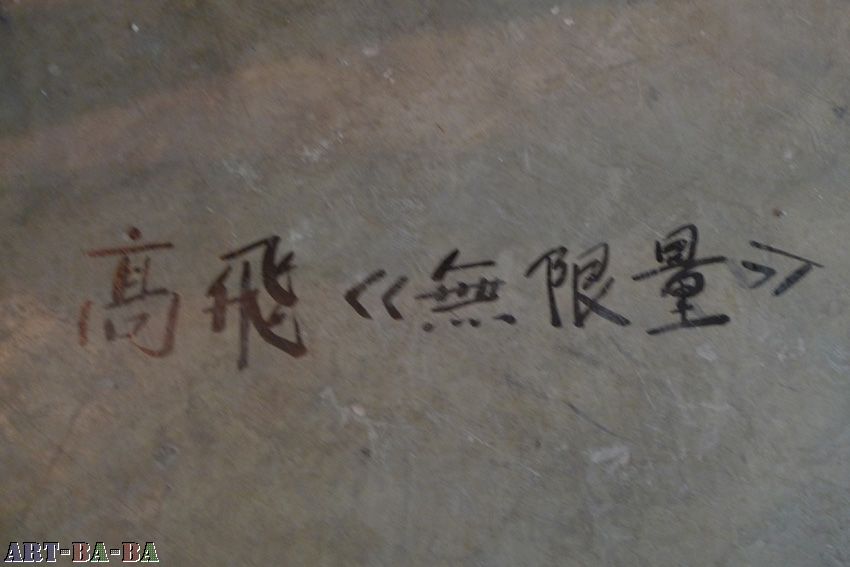 高飛《無限量》
ART-BA-BA